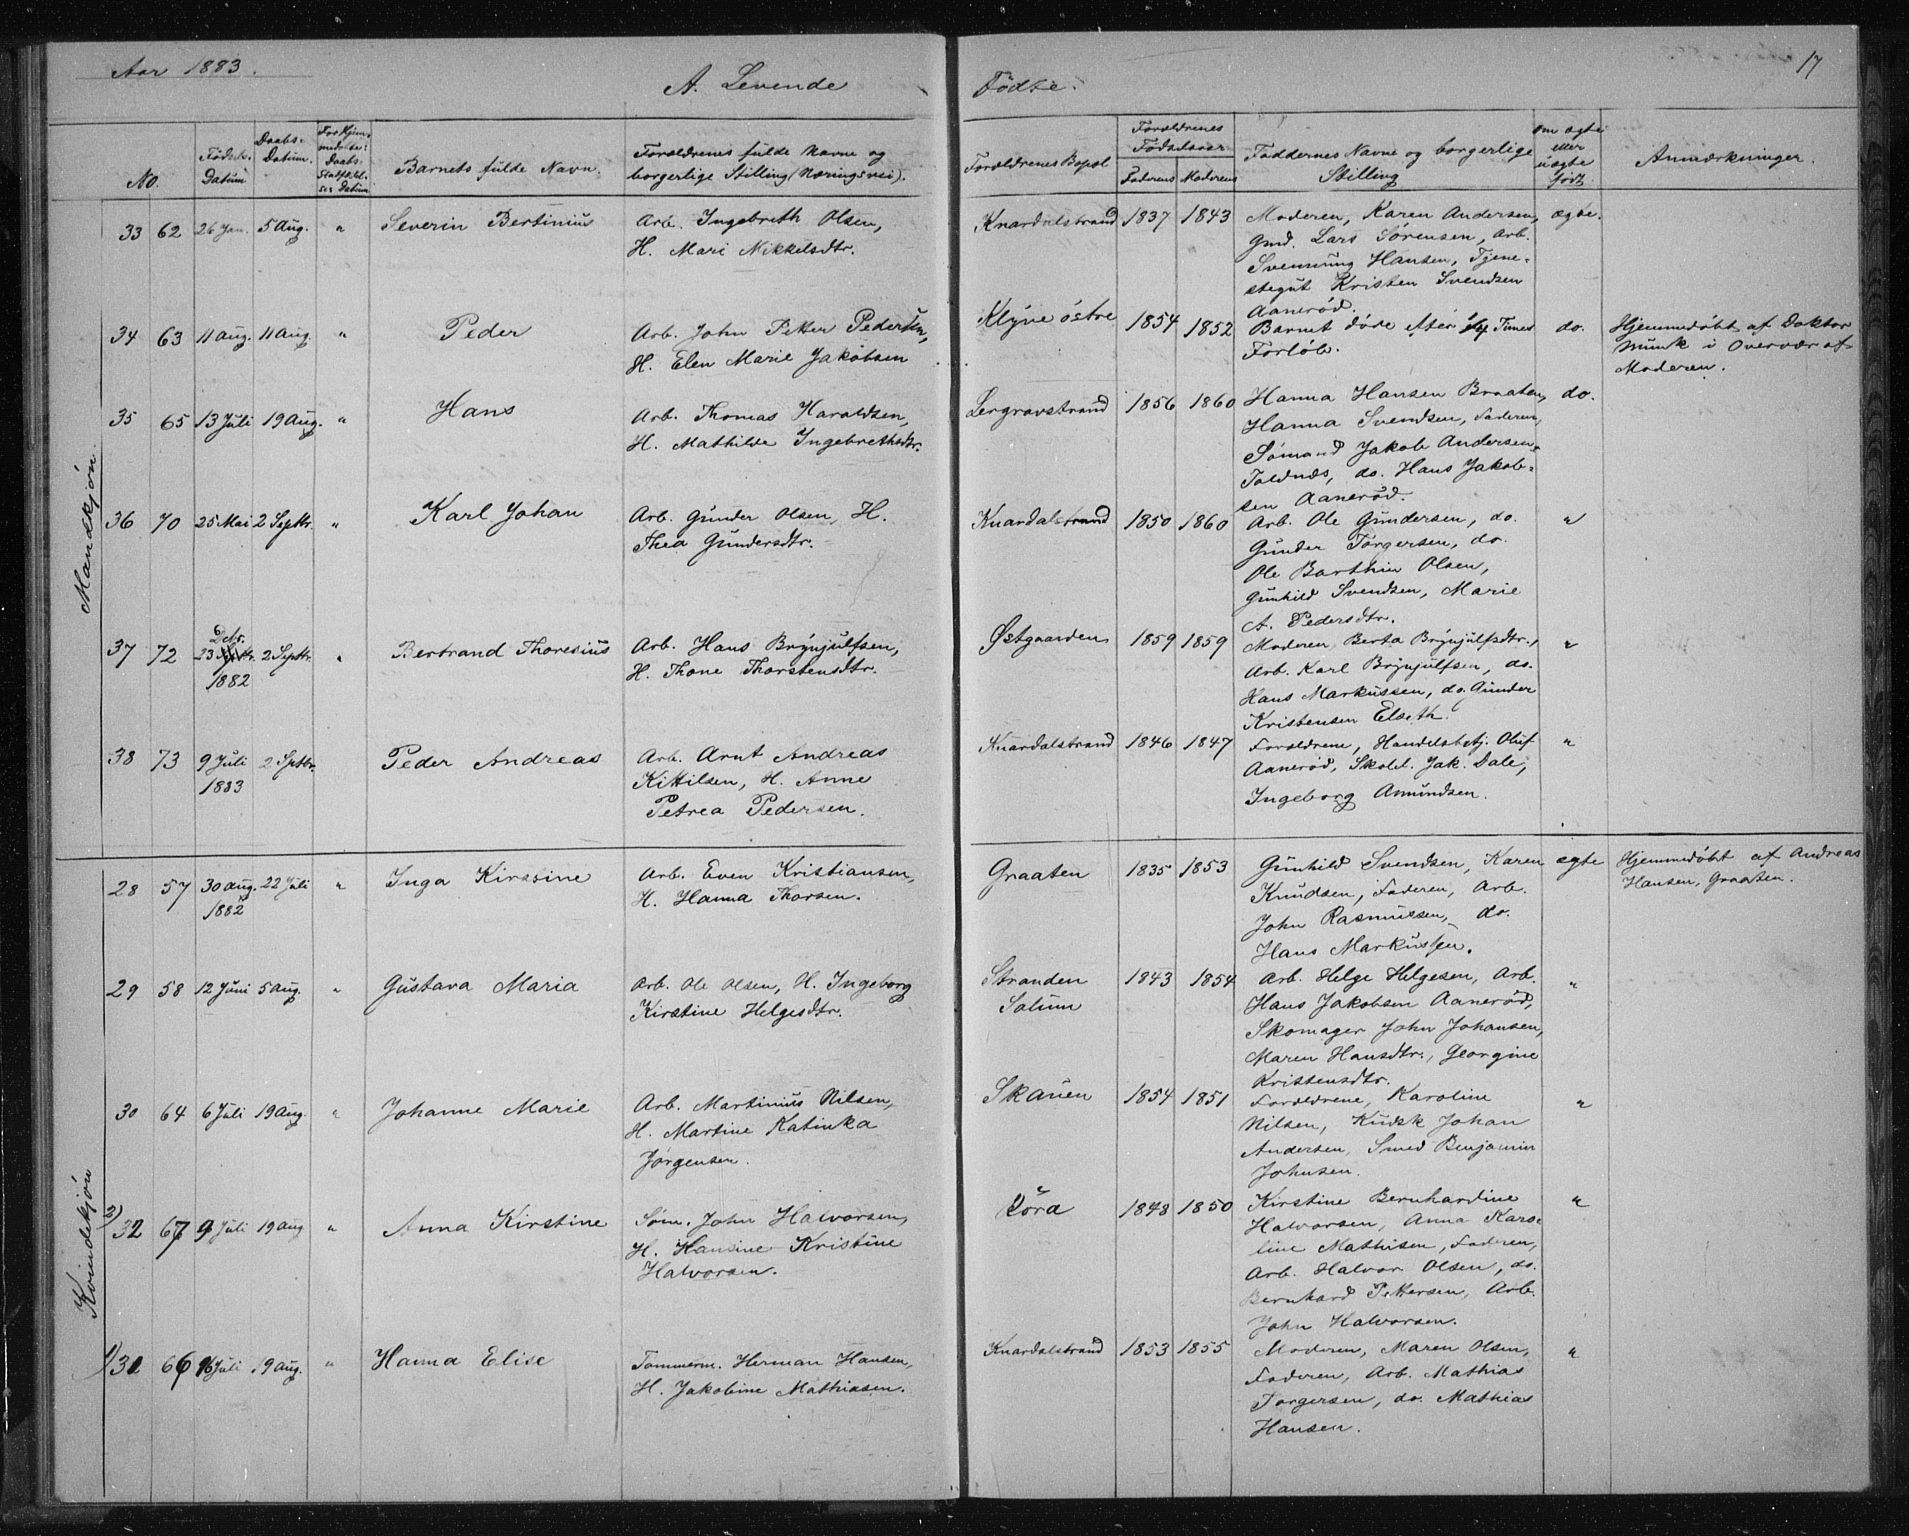 Aar 1883.
A. Levende Fødte.
17
No.
Fødsels-
Datum
Daabs-
Datum.
For Hjem-
medøbte:
Daabs-
Stadfæstel-
ses Datum
Barnets fulde Navn.
Forældrenes fulde Navne og
borgerlige Stilling (Næringsvei).
Forældrenes Bopæl
Forældrenes
Fødselsaar
Faderens
Moderens
Faddernes Navne og borgerlige
Stilling
om ægte
eller
uægte
født.
Anmærkninger.
Mandkjøn.
33 62 26 Jan. 5 Aug. " Severin Bertinius
Arb. Ingebreth Olsen,
H. Mari Nikkelsdtr.
Knardalstrand 1837 1843
Moderen, Karen Andersen,
Gmd. Lars Sørensen, Arb.
Svennung Hansen, Tjene-
stegut Kristen Svendsen
Aanerød.
ægte.
34 63 11 Aug. 11 Aug. " Peder
Arb. John Petter Pedersen,
H. Elen Marie Jakobsen
Klyve østre 1854 1852
Barnet døde efter Times
Forløb.
do.
Hjemmedøbt af Doktor
Munk i Overvær af
Moderen.
35 65 13 Juli 19 Aug. " Hans
Arb. Thomas Haraldsen,
H. Mathilde Ingebrethsdtr.
Lergravstrand 1856 1860
Hanna Hansen Braaten,
Hanna Svendsen, Faderen,
Sømand Jakob Andersen
Toldnæs, do. Hans Jakob-
sen Aanerød.
do.
36 70 25 Mai 2 Septbr. " Karl Johan
Arb. Gunder Olsen, H.
Thea Gundersdtr.
Knardalstrand 1850 1860
Arb. Ole Gundersen, do.
Gunder Torgersen, do.
Ole Barthin Olsen,
Gunhild Svendsen, Marie
A. Pedersdtr.
"
37 72 23 Dcbr.
1882
2 Septbr. " Bertrand Thoresius
Arb. Hans Brynjulfsen,
H. Thone Thorstensdtr.
Østgaarden 1859 1859
Moderen, Berta Brynjulfsdtr.,
Arb. Karl Brynjulfsen, do.
Hans Markussen, do. Gunder
Kristensen Elseth.
"
38 73 9 Juli
1883
2 Septbr. Peder Andreas
Arb. Arnt Andreas
Kittilsen, H. Anne
Petrea Pedersen.
Knardalstrand 1846 1847
Forældrene, Handelsbetj. Oluf
Aanerød, Skolel. Jak. Dale,
Ingeborg Amundsen.
"
Kvindekjøn
28 57 30 Aug.
1882
22 Juli " Inga Kirstine
Arb. Even Kristiansen,
H. Hanna Thorsen.
Graaten 1835 1853
Gunhild Svendsen, Karen
Knudsen, Faderen, Arb.
John Rasmussen, do.
Hans Markussen.
ægte
Hjemmedøbt af Andreas
Hansen, Graaten.
29 58 12 Juni 5 Aug. " Gustava Maria
Arb. Ole Olsen, H. Ingeborg
Kirstine Helgesdtr.
Stranden
Solum
1843 1854
Arb. Helge Helgesen, Arb.
Hans Jakobsen Aanerød,
Skomager John Johansen,
Maren Hansdtr., Georgine
Kristensdtr.
"
30 64 6 Juli 19 Aug. " Johanne Marie
Arb. Martinius Nilsen,
H. Martine Katinka
Jørgensen.
Skauen 1854 1851
Forældrene, Karoline
Nilsen, Kudsk Johan
Andersen, Smed Benjamin
Johnsen.
"
2) 32 67 9 Juli 19 Aug " Anna Kirstine
Søm. John Halvorsen,
H. Hansine Kristine
Halvorsen.
Röra 1848 1850
Kirstine Bernhardine
Halvorsen, Anna Karo-
line Mathisen, Faderen,
Arb. Halvor Olsen, do.
Bernhard Pettersen, Arb.
John Halvorsen.
"
1) 31 66 16 Juli 19 Aug. " Hanna Elise
Tømmerm. Herman Hansen,
H. Jakobine Mathiasen.
Knardalstrand 1853 1855
Moderen, Maren Olsen,
Faderen, Arb. Mathias
Torgersen, do. Mathias
Hansen.
"